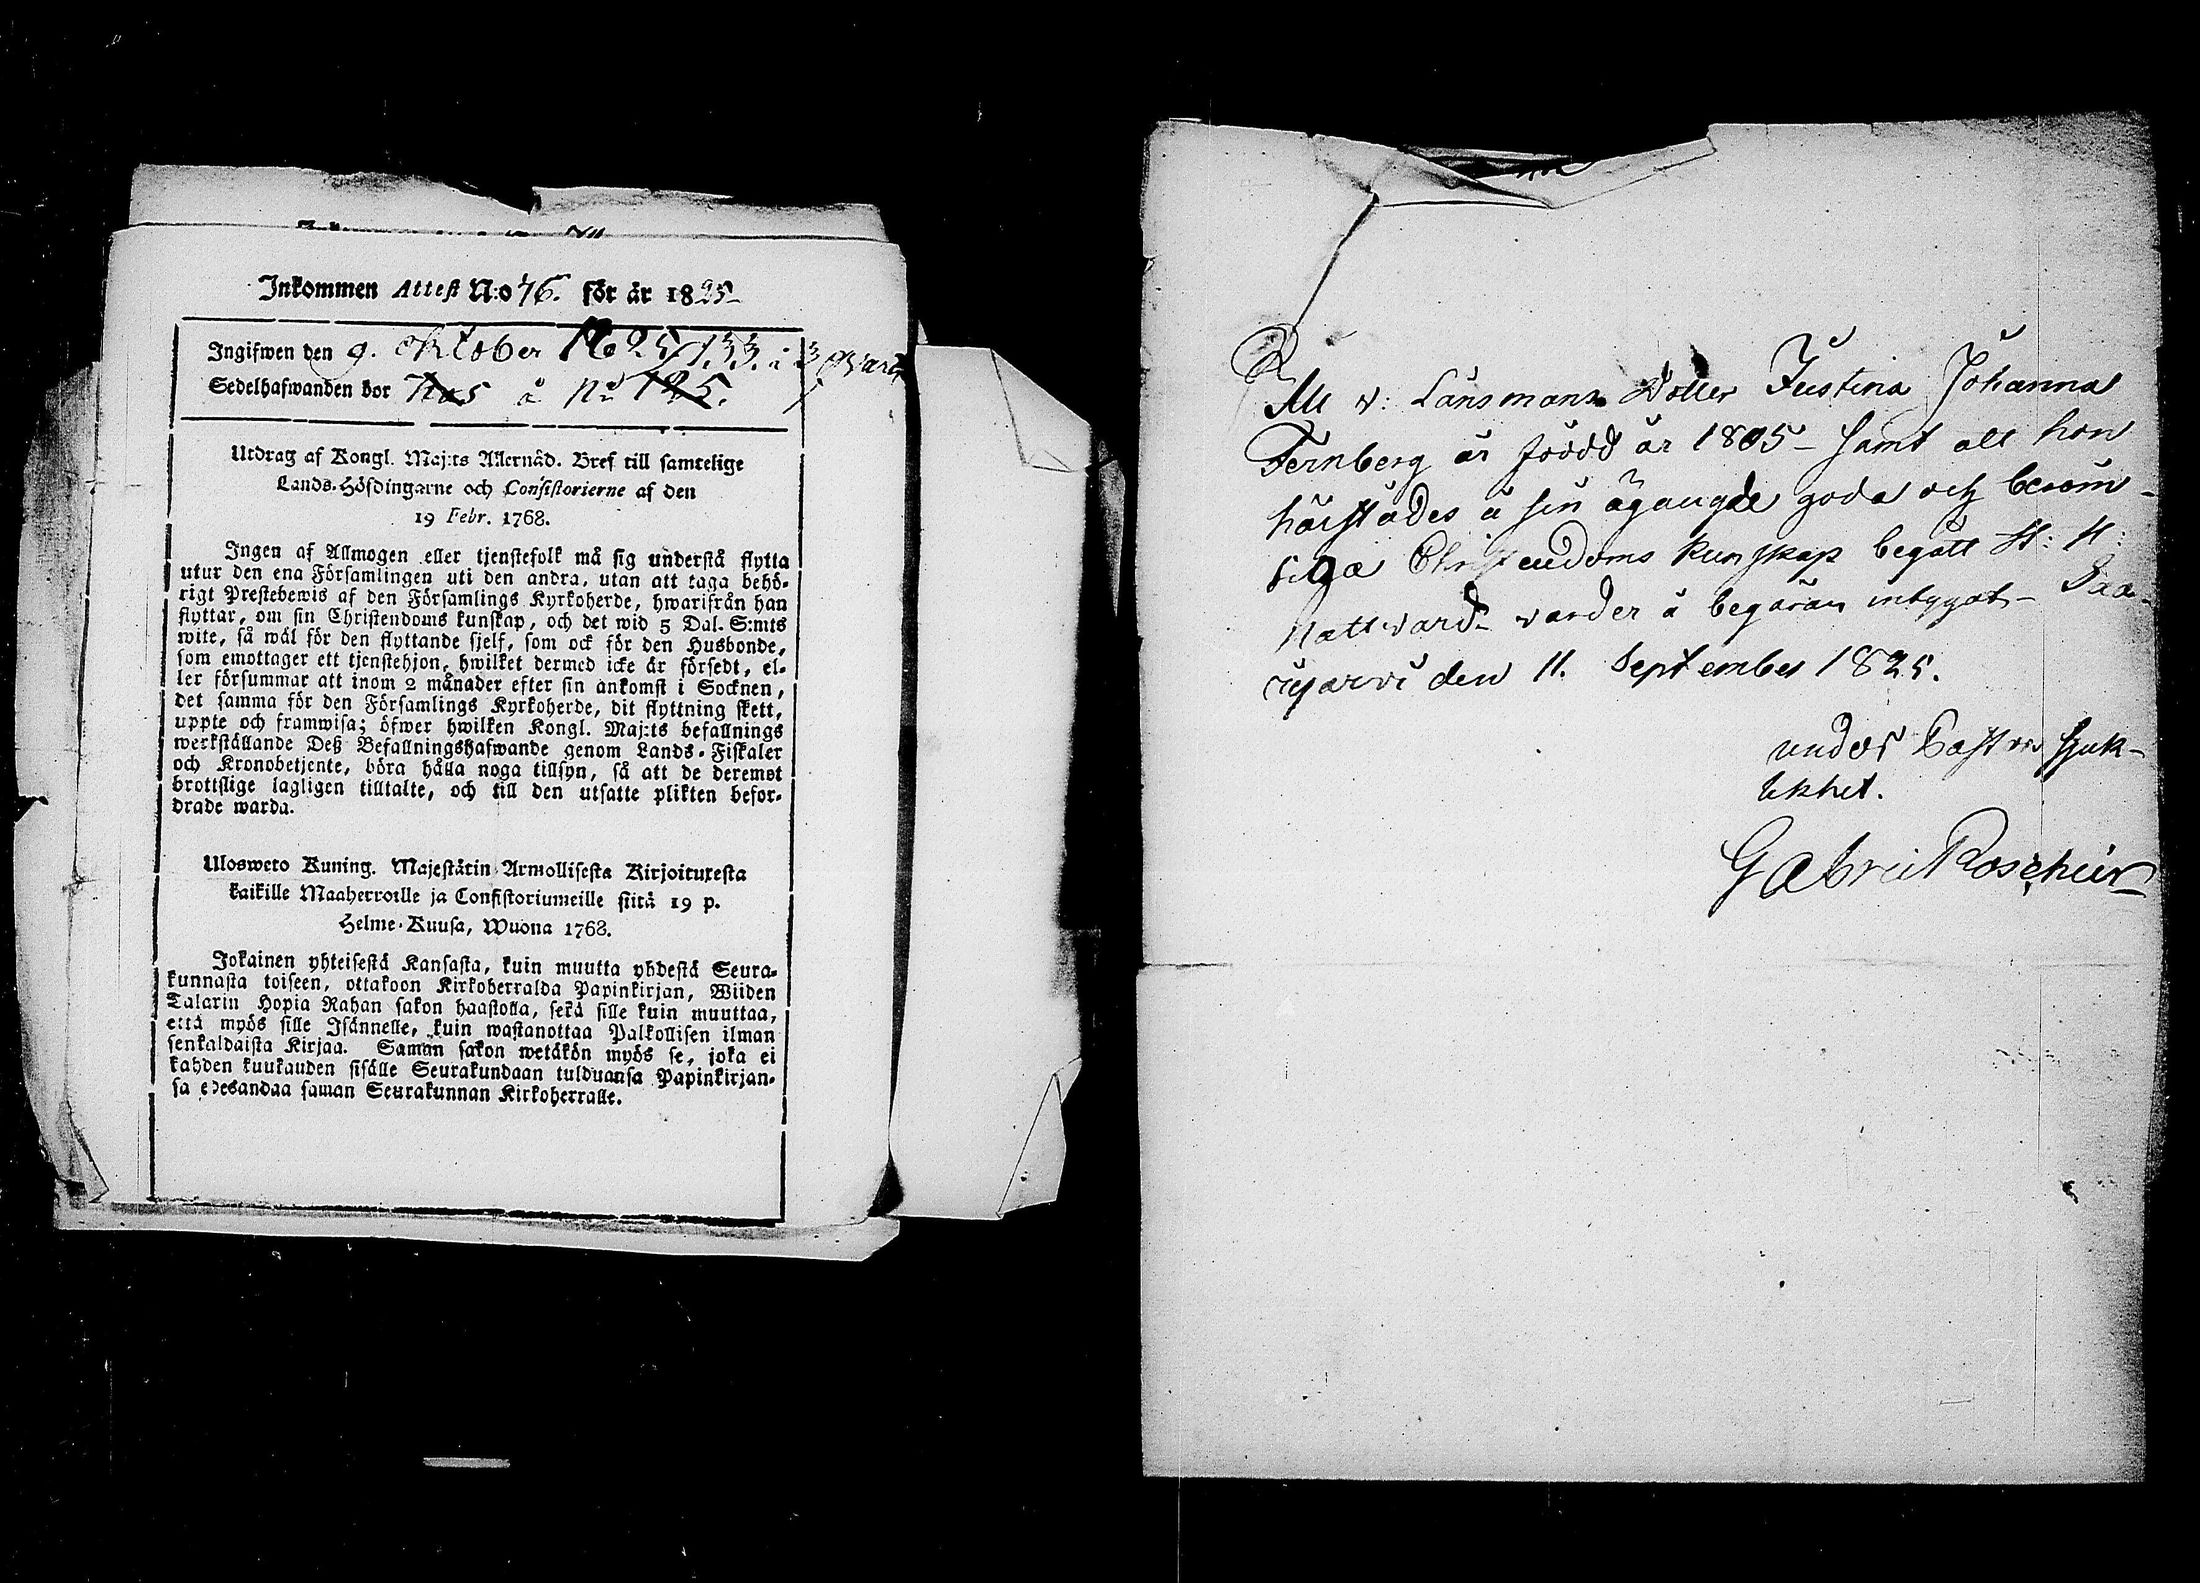 Inkommen Attest N:o 76. för år 1825
Ingifwen den 9. oktober 1825 / 133. i 3 qvart.
Sedelhafwanden bor hos å No 125.
Utdrag af Kongl. Maj:ts Allernåd. Bref till samtelige
Lands-Höfdingarne och Consistorierne af den
19 Febr. 1768.
Ingen af Allmogen eller tjenstefolk må sig understå flytta
utur den ena Församlingen uti den andra, utan att taga behö-
rigt Prestebewis af den Församlings Kyrkoherde, hwarifrån han
flyttar, om sin Christendoms kunskap, och det wid 5 Dal. S:mts
wite, så wäl för den flyttande sjelf, som ock för den Husbonde,
som emottager ett tjenstehjon, hwilket dermed icke är försedt, el-
ler försummar att inom 2 månader efter sin ankomst i Socknen,
det samma för den Församlings Kyrkoherde, dit flyttning skett,
uppte och framwisa; öfwer hwilken Kongl. Maj:ts befallnings
werkställande Deß Befallningshafwande genom Lands-Fiskaler
och Kronobetjente, böra hålla noga tillsyn, så att de deremot
brottslige lagligen tilltalte, och till den utsatte plikten befor-
drade warda.
Ulosweto Kuning. Majestätin Armollisesta Kirjoituxesta
kaikille Maaherroille ja Consistoriumeille siitä 19 p.
Helme-Kuusa, Wuona 1768.
Jokainen yhteisestä Kansasta, kuin muutta yhdestä Seura-
kunnasta toiseen, ottakoon Kirkoherralda Papinkirjan, Wiiden
Talarin Hopia Rahan sakon haastolla, sekä sille kuin muuttaa,
että myös sille Isännelle, kuin wastanottaa Palkollisen ilman
senkaldaista Kirjaa. Saman sakon wetäkön myös se, joka ei
kahden kuukauden sisälle Seurakundaan tulduansa Papinkirjan-
sa edesandaa saman Seurakunnan Kirkoherralle.
Att v: Länsmans Dotter Justina Johanna
Fernberg är född år 1805 – samt att hon
härstädes å sin ägande goda och beröm-
liga Christendoms kunskap begått H: H:
Nattvard varder å begäran intygat – Saa-
rijärvi den 11. September 1825.
under Pastors sjuk-
likhet.
Gabriel Roschier